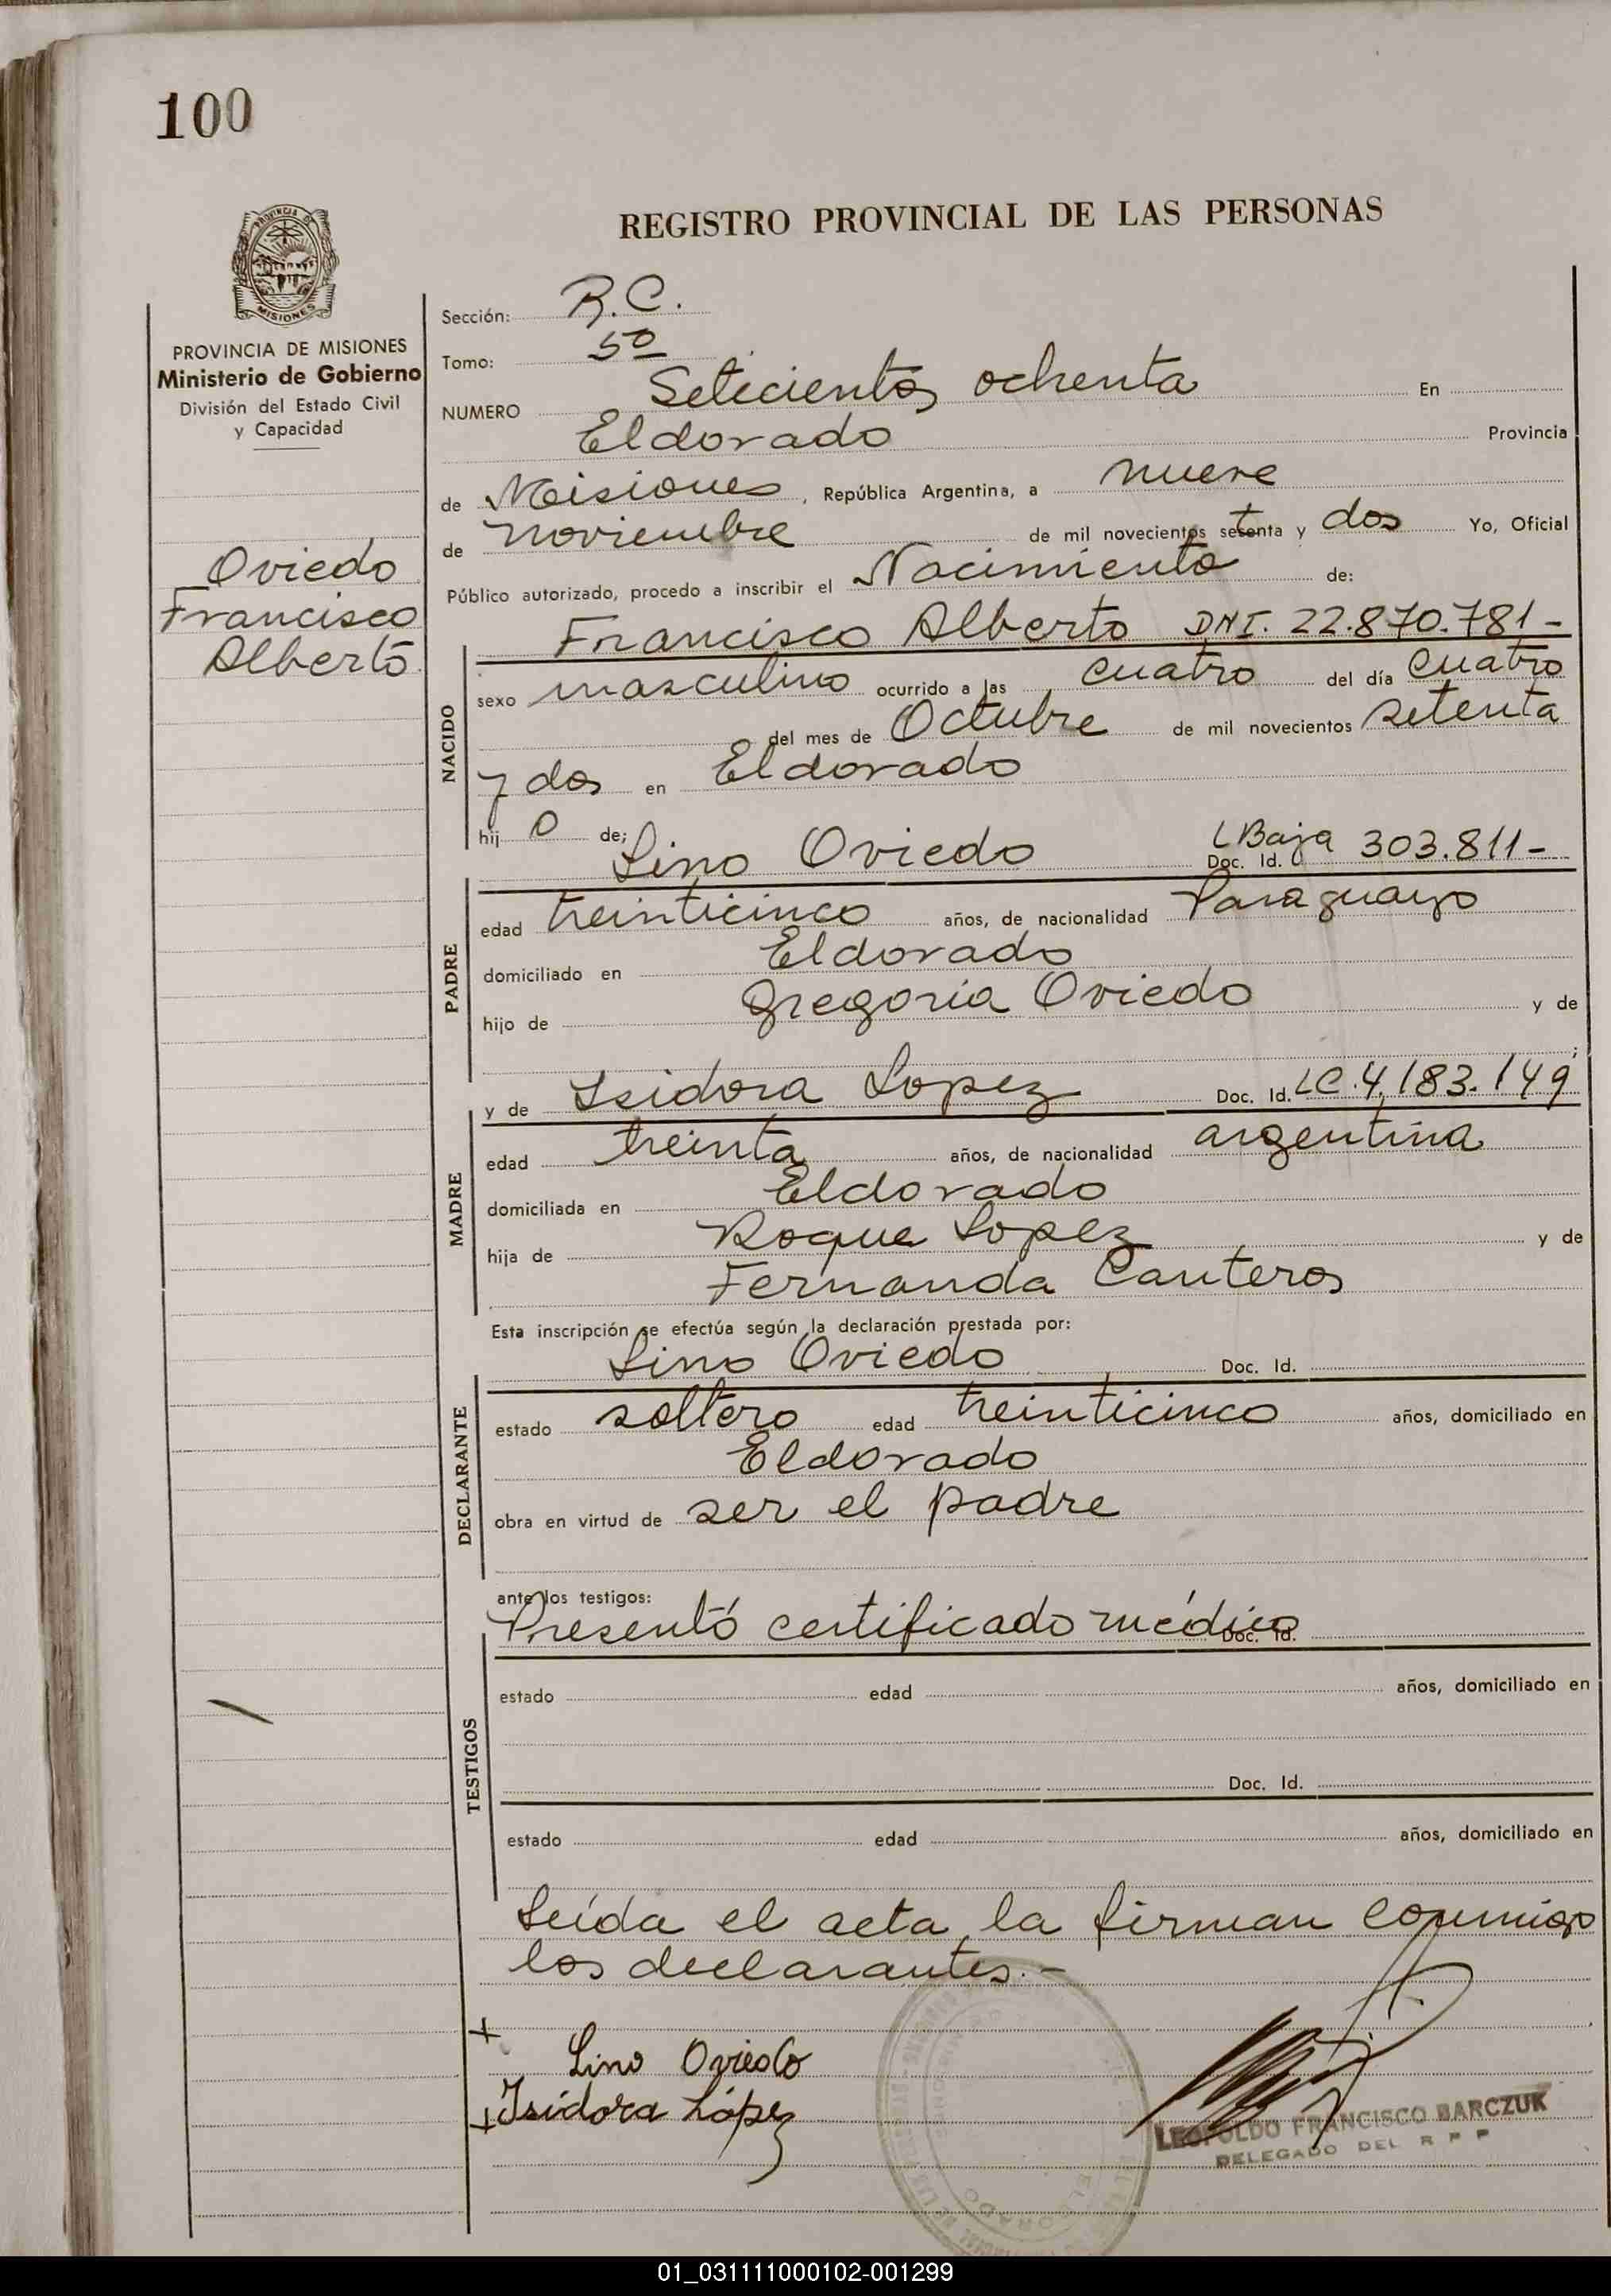 100
REGISTRO PROVINCIAL DE LAS PERSONAS
MISIONES
PROVINCIA DE MISIONES
Ministerio de Gobierno
División del Estado Civil
y Capacidad
Oviedo
Francisco
Alberto
Sección: R.C.
Tomo: 5º
NUMERO Setecientos ochenta En
Eldorado Provincia
de Misiones, República Argentina, a nueve
de noviembre de mil novecientos setenta y dos Yo, Oficial
Público autorizado, procedo a inscribir el Nacimiento de:
NACIDO
Francisco Alberto DNI. 22.870.781-
sexo masculino ocurrido a las cuatro del día cuatro
del mes de Octubre de mil novecientos setenta
y dos en Eldorado
hij o de;
Lino Oviedo Doc. Id. LBaja 303.811-
PADRE
edad treinticinco años, de nacionalidad Paraguayo
domiciliado en Eldorado
hijo de Gregoria Oviedo y de
;
y de Isidora Lopez Doc. Id. LC.4,183.149
MADRE
edad treinta años, de nacionalidad argentina
domiciliada en Eldorado
hija de Roque Lopez y de
Fernanda Canteros
Esta inscripción se efectúa según la declaración prestada por:
Lino Oviedo Doc. Id.
DECLARANTE
estado soltero edad treinticinco años, domiciliado en
Eldorado
obra en virtud de ser el padre
ante los testigos:
Presentó certificado médico Doc. Id.
TESTIGOS
estado edad años, domiciliado en
Doc. Id.
estado edad años, domiciliado en
Leída el acta, la firman conmigo
los declarantes.-
+ Lino Oviedo
+ Isidora López
LEOPOLDO FRANCISCO BARCZUK
DELEGADO DEL R P P
01_031111000102-001299